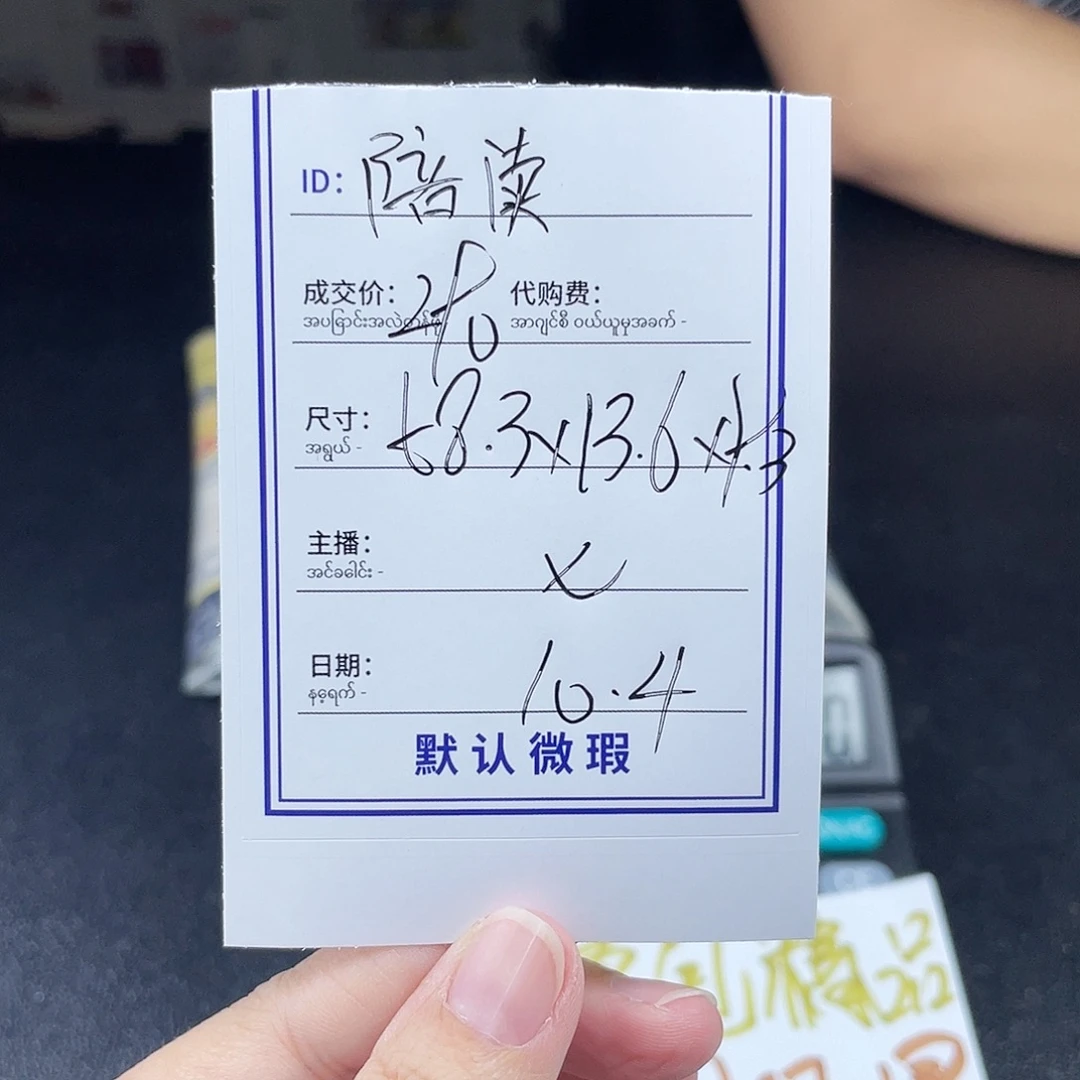 ID: 陪读
成交价: 代购费:
အပြောင်းအလဲတန်ဖိုး အာဂျင်စီ ဝယ်ယူမှုအခက် -
尺寸: 58.3x13.6x4.3
အရွယ် -
主播: x
အင်ခေါင်း -
日期: 10.4
နေ့ရက် -
默认微瑕
品